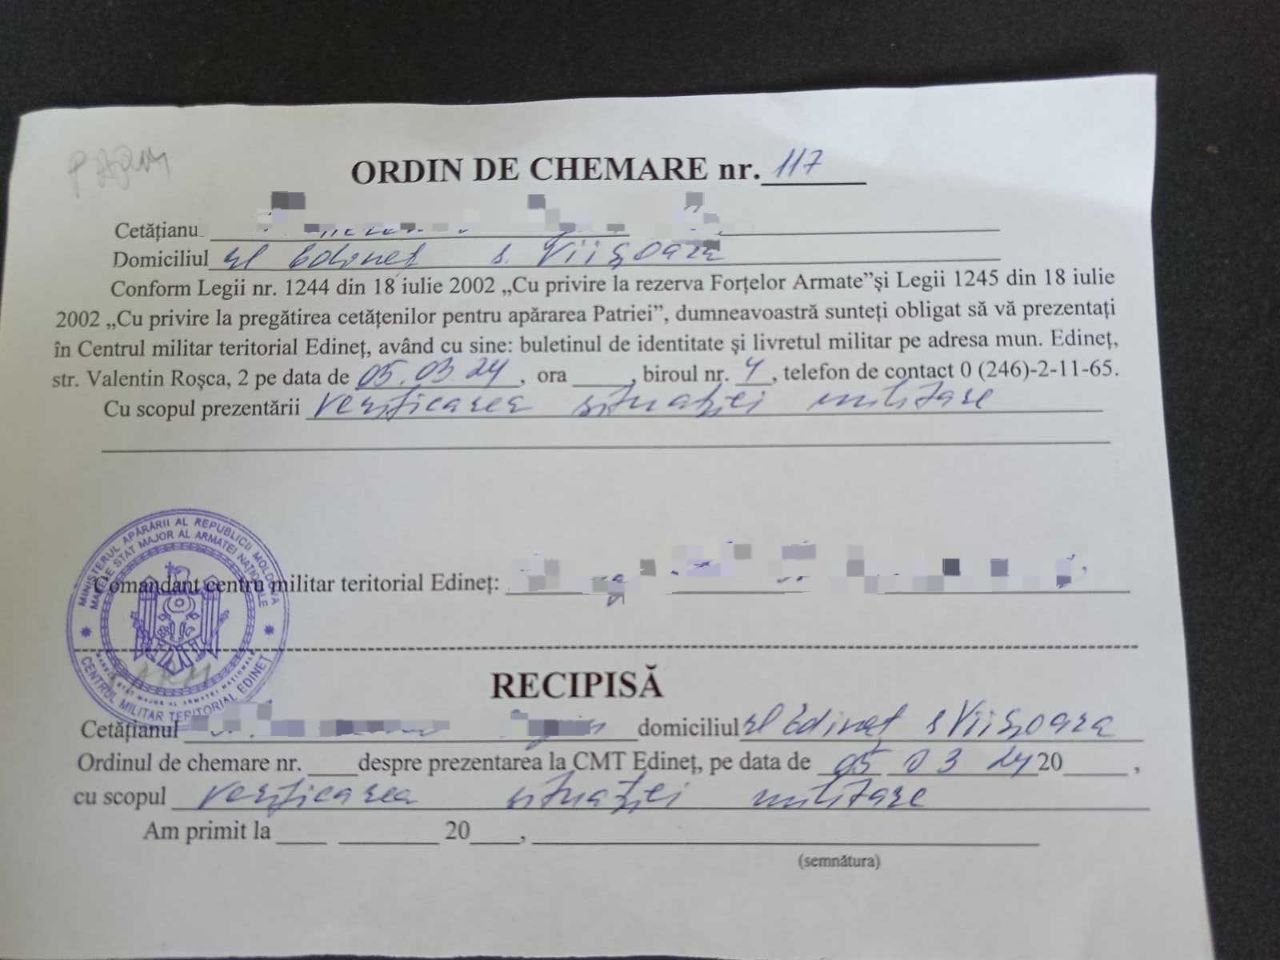 ORDIN DE CHEMARE nr. 117
Cetățianu
Domiciliul rl Edineț s. Viișoara
Conform Legii nr. 1244 din 18 iulie 2002 „Cu privire la rezerva Forțelor Armate”și Legii 1245 din 18 iulie
2002 „Cu privire la pregătirea cetățenilor pentru apărarea Patriei”, dumneavoastră sunteți obligat să vă prezentați
în Centrul militar teritorial Edineț, având cu sine: buletinul de identitate și livretul militar pe adresa mun. Edineț,
str. Valentin Roșca, 2 pe data de 05.03.24, ora ____, biroul nr. 4, telefon de contact 0 (246)-2-11-65.
Cu scopul prezentării verificarea situației militare
MINISTERUL APĂRĂRII AL REPUBLICII MOLDOVA
MARELE STAT MAJOR AL ARMATEI NAȚIONALE
CENTRUL MILITAR TERITORIAL EDINEȚ
Comandant centru militar teritorial Edineț:
RECIPISĂ
Cetățianul domiciliul rl Edineț s Viișoara
Ordinul de chemare nr. ____ despre prezentarea la CMT Edineț, pe data de 05 03 24 20____,
cu scopul verificarea situației militare
Am primit la ____ ________ 20____,
(semnătura)